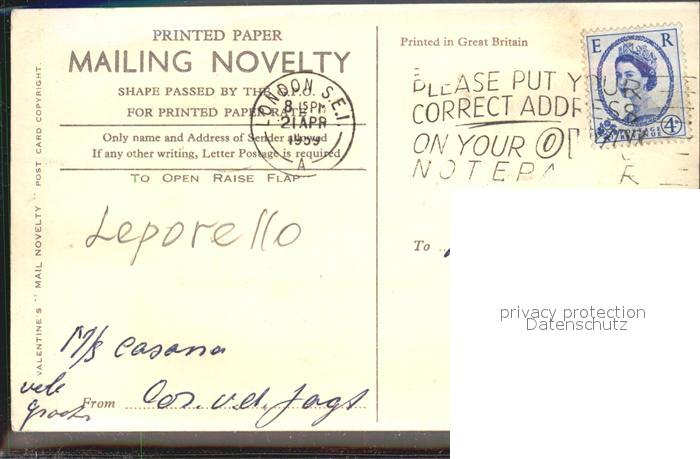 PRINTED PAPER
MAILING NOVELTY
SHAPE PASSED BY THE G.P.O.
FOR PRINTED PAPER RATE
Only name and Address of Sender allowed
If any other writing, Letter Postage is required
TO OPEN RAISE FLAP
VALENTINE'S "MAIL NOVELTY" POST CARD COPYRIGHT.
LONDON S.E.1.
8 15PM
21 APR
1959
A
Leporello
M/S Casana
vele
groeten
From Cor. v.d. Jagt
Printed in Great Britain
PLEASE PUT YOUR
CORRECT ADDRESS
ON YOUR
NOTEPA
E R
POSTAGE
4D
To
privacy protection
Datenschutz